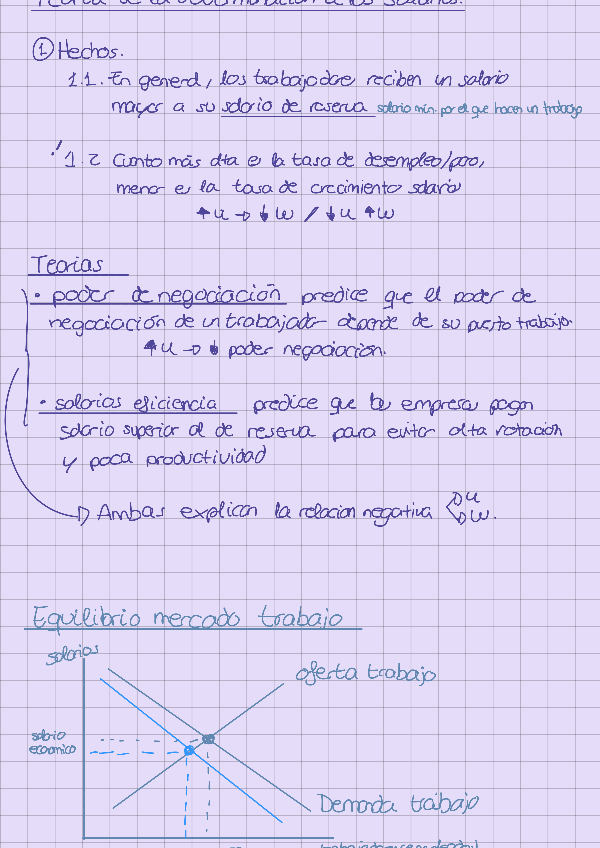 ① Hechos.
1.1. En general, los trabajadore reciben un salario
mayor a su salario de reserva salario min. por el que hacen un trabajo
1.2 Cuanto más alta e la tasa de desempleo/paro,
menor e la tasa de crecimiento salario
↑u → ↓w / ↓u ↑w
Teorias
• poder de negociación predice que el poder de
negociación de un trabajador depende de su puesto trabajo.
↑u → ↓ poder negociación.
• salarios eficiencia predice que la empresa pagan
salario superior al de reserva para evitar alta rotación
y poca productividad
→ Ambas explican la relacion negativa u
w.
Equilibrio mercado trabajo
salarios
oferta trabajo
salario
economico
Demanda trabajo